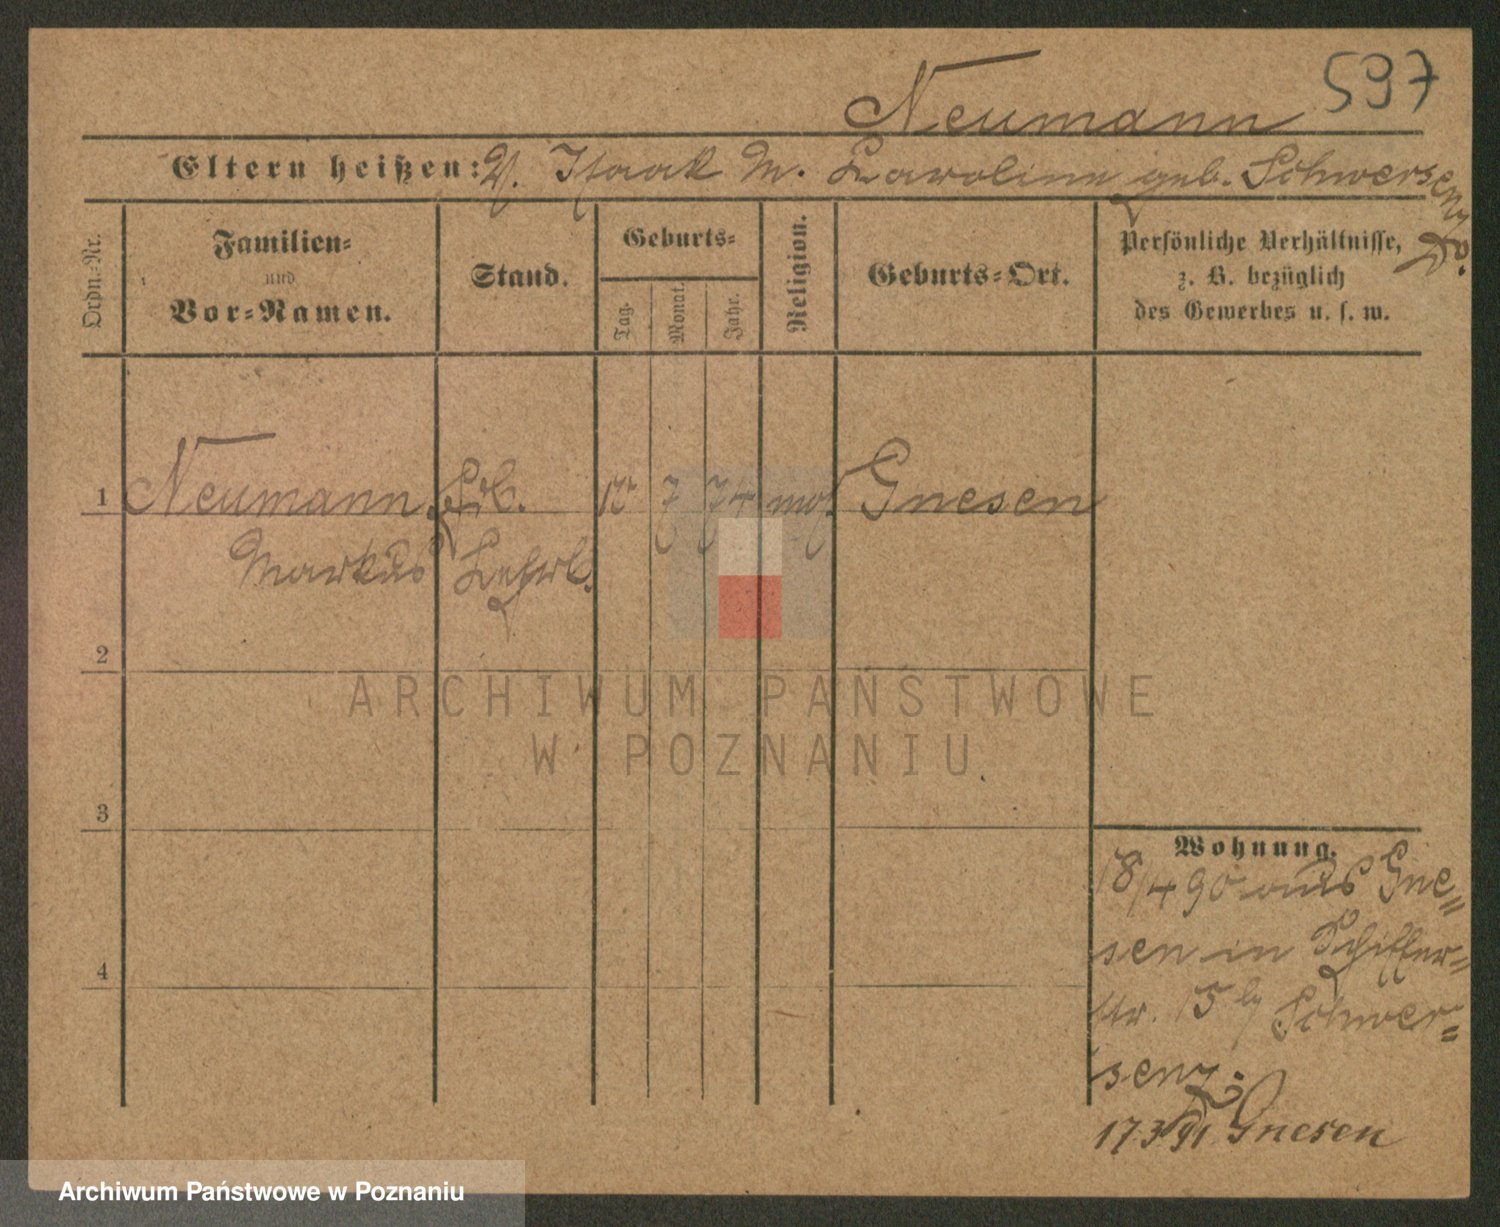 597
Neumann
Eltern heißen: V. Isaak M. Karoline geb. Schwersenz
Ordn.-Nr.
Familien-
und
Vor-Namen.
Stand.
Geburts-
Tag.
Monat.
Jahr.
Religion.
Geburts-Ort.
Persönliche Verhältnisse,
z. B. bezüglich
des Gewerbes u. s. w.
1 Neumann, 7 74 mos. Gnesen
Markus Lehrl.
2
3
4
ARCHIWUM PAŃSTWOWE
W POZNANIU
Wohnung.
18/4 90 aus Gne=
sen in Schiffer=
str. 15 b/ Schwer=
senz.
17 3 91 Gnesen
Archiwum Państwowe w Poznaniu